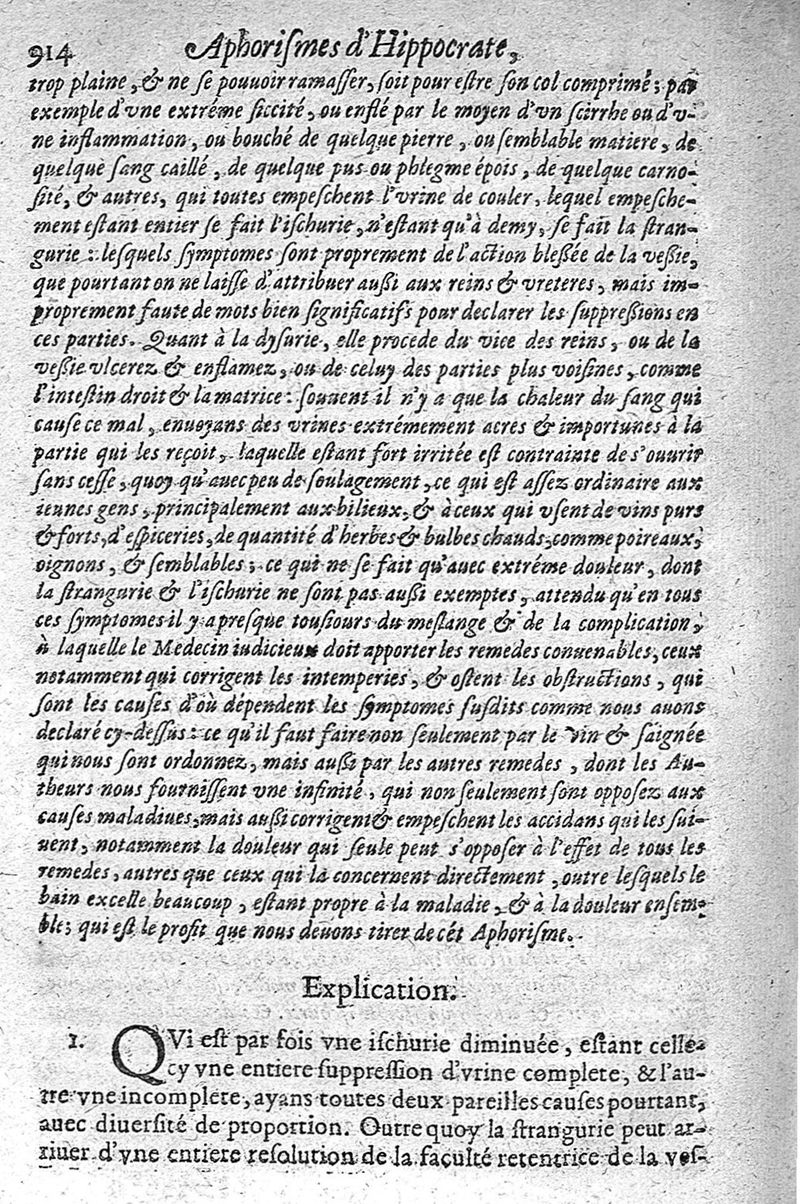 914 Aphoriſmes d'Hippocrate,
trop plaine, & ne ſe pouuoir ramaſſer, ſoit pour eſtre ſon col comprimé; par
exemple d'vne extréme ſiccité, ou enflé par le moyen d'vn ſcirrhe ou d'v-
ne inflammation, ou bouché de quelque pierre, ou ſemblable matiere, de
quelque ſang caillé, de quelque pus ou phlegme épois, de quelque carno-
ſité, & autres, qui toutes empeſchent l'vrine de couler, lequel empeſche-
ment eſtant entier ſe fait l'iſchurie, n'eſtant qu'à demy, ſe fait la ſtran-
gurie : leſquels ſymptomes ſont proprement de l'action bleßée de la veßie,
que pourtant on ne laiſſe d'attribuer außi aux reins & vreteres, mais im-
proprement faute de mots bien ſignificatifs pour declarer les ſuppreßions en
ces parties. Quant à la dyſurie, elle procede du vice des reins, ou de la
veßie vlcerez & enflamez, ou de celuy des parties plus voiſines, comme
l'inteſtin droit & la matrice : ſouuent il n'y a que la chaleur du ſang qui
cauſe ce mal, enuoyans des vrines extrémement acres & importunes à la
partie qui les reçoit, laquelle eſtant fort irritée eſt contrainte de s'ouurir
ſans ceſſe, quoy qu'auec peu de ſoulagement, ce qui eſt aſſez ordinaire aux
ieunes gens, principalement aux bilieux, & à ceux qui vſent de vins purs
& forts, d'eſpiceries, de quantité d'herbes & bulbes chauds, comme poireaux,
oignons, & ſemblables; ce qui ne ſe fait qu'auec extréme douleur, dont
la ſtrangurie & l'iſchurie ne ſont pas außi exemptes, attendu qu'en tous
ces ſymptomes il y a preſque touſiours du meſlange & de la complication,
à laquelle le Medecin iudicieux doit apporter les remedes conuenables, ceux
notamment qui corrigent les intemperies, & oſtent les obſtructions, qui
ſont les cauſes d'où dépendent les ſymptomes ſuſdits comme nous auons
declaré cy-deſſus : ce qu'il faut faire non ſeulement par le vin & ſaignée
qui nous ſont ordonnez, mais außi par les autres remedes, dont les Au-
theurs nous fourniſſent vne infinité, qui non ſeulement ſont oppoſez aux
cauſes maladiues, mais außi corrigent & empeſchent les accidans qui les ſui-
uent, notamment la douleur qui ſeule peut s'oppoſer à l'effet de tous les
remedes, autres que ceux qui la concernent directement, outre leſquels le
bain excelle beaucoup, eſtant propre à la maladie, & à la douleur enſem-
ble; qui eſt le profit que nous deuons tirer de cét Aphoriſme.
Explication.
1. QVi eſt par fois vne iſchurie diminuée, eſtant celle-
cy vne entiere ſuppreſſion d'vrine complete, & l'au-
tre vne incomplete, ayans toutes deux pareilles cauſes pourtant,
auec diuerſité de proportion. Outre quoy la ſtrangurie peut ar-
riuer d'vne entiere reſolution de la faculté retentrice de la veſ-